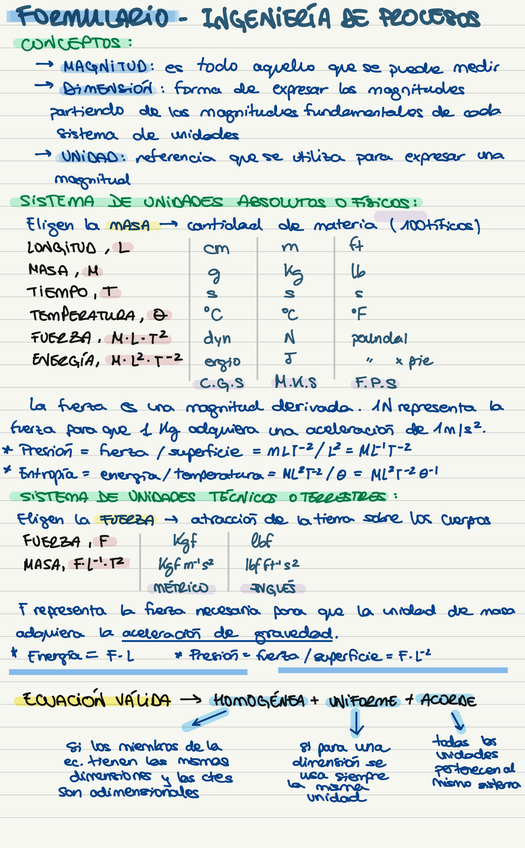 FORMULARIO - INGENIERÍA DE PROCESOS
CONCEPTOS:
→ MAGNITUD: es todo aquello que se puede medir
→ DIMENSIÓN: forma de expresar las magnitudes
partiendo de las magnitudes fundamentales de cada
sistema de unidades
→ UNIDAD: referencia que se utiliza para expresar una
magnitud
SISTEMA DE UNIDADES ABSOLUTOS O FÍSICOS:
Eligen la MASA → cantidad de materia (100tíficos)
LONGITUD, L cm m ft
MASA, M g Kg lb
TIEMPO, T s s s
TEMPERATURA, θ °C °C °F
FUERZA, M·L·T² dyn N poundal
ENERGÍA, M·L²·T⁻² ergio J " x pie
C.G.S M.K.S F.P.S
La fuerza es una magnitud derivada. 1N representa la
fuerza para que 1 Kg adquiera una aceleración de 1m/s².
* Presión = fuerza/superficie = MLT⁻²/L² = ML⁻¹T⁻²
* Entropía = energía/temperatura = ML²T⁻²/θ = ML²T⁻²θ⁻¹
SISTEMA DE UNIDADES TÉCNICOS O TERRESTRES:
Eligen la FUERZA → atracción de la tierra sobre los cuerpos
FUERZA, F Kgf lbf
MASA, F·L⁻¹·T² Kgf m⁻¹s² lbf ft⁻¹s²
MÉTRICO INGLÉS
F representa la fuerza necesaria para que la unidad de masa
adquiera la aceleración de gravedad.
* Energía = F·L * Presión = fuerza/superficie = F·L⁻²
ECUACIÓN VÁLIDA → HOMOGÉNEA + UNIFORME + ACORDE
Si los miembros de la
ec. tienen las mismas
dimensiones y las ctes
son adimensionales
si para una
dimensión se
usa siempre
la misma
unidad
todas las
unidades
pertenecen al
mismo sistema